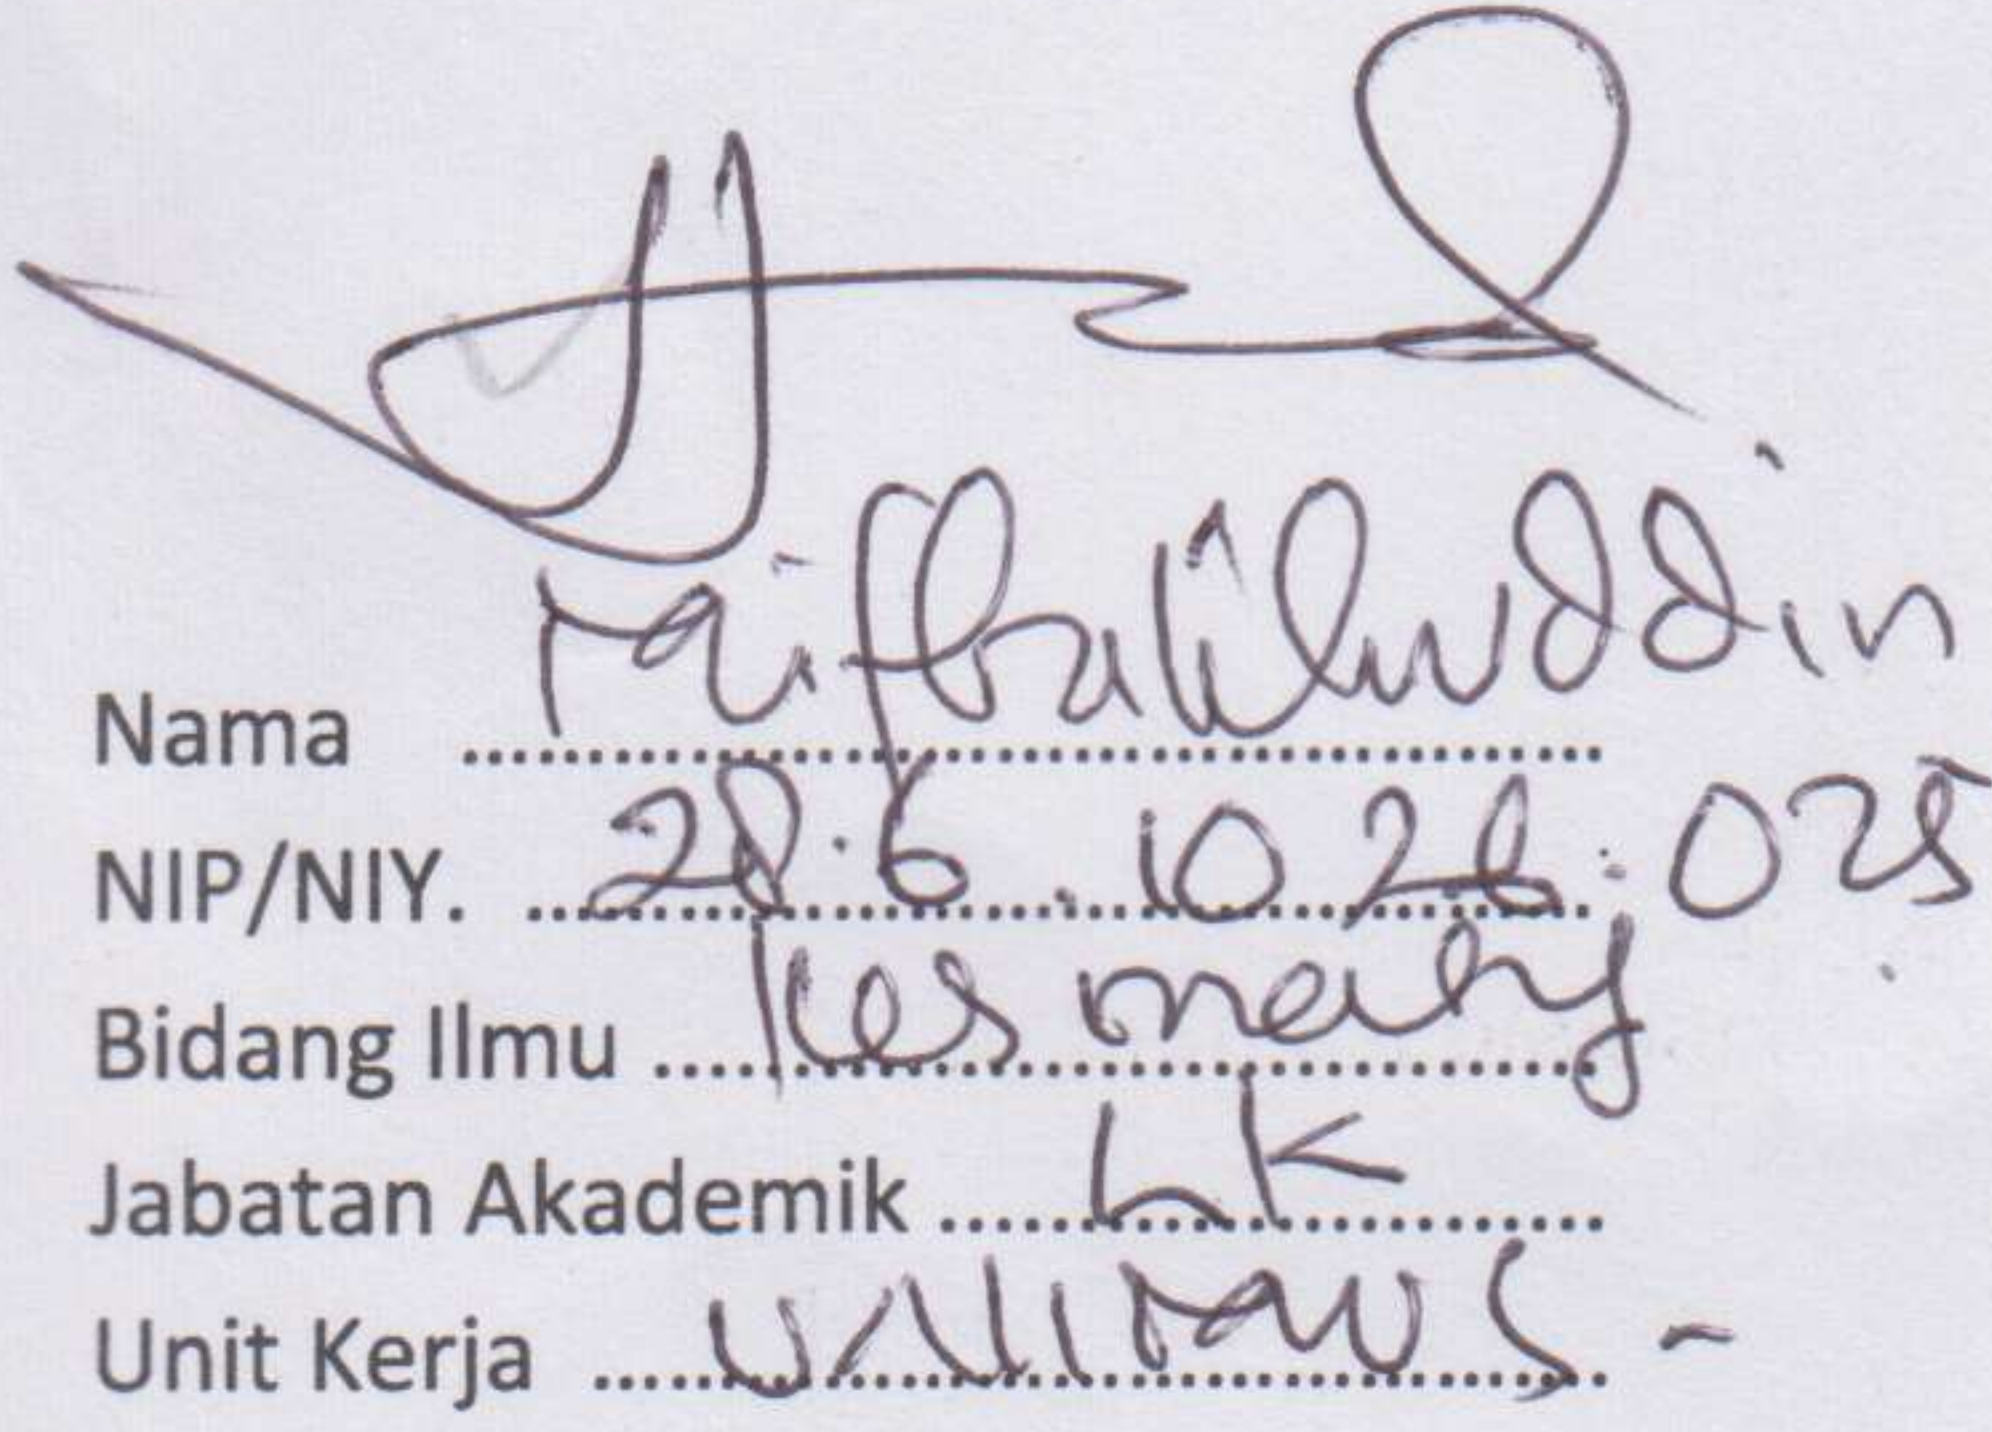 Nama Miftakhuddin
NIP/NIY. 28.6.1026.025
Bidang Ilmu Kesmas
Jabatan Akademik LK
Unit Kerja UNIMUS -